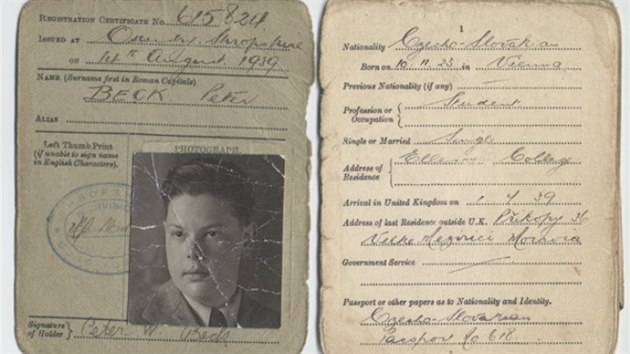 REGISTRATION CERTIFICATE No. 615824
ISSUED AT Shropshire
ON 1st August 1939
NAME (Surname first in Roman Capitals)
BECK Peter
ALIAS
Left Thumb Print
(if unable to sign name
in English Characters).
PHOTOGRAPH.
Signature of Holder Peter W. Beck
1
Nationality Czecho-Slovakian
Born on 10.11.23 in Vienna
Previous Nationality (if any)
Profession or Occupation Student
Single or Married Single
Address of Residence College
Arrival in United Kingdom on 1.7.39
Address of last Residence outside U.K. Příkopy 36
Government Service
Passport or other papers as to Nationality and Identity.
Czecho-Slovakian
Passport No